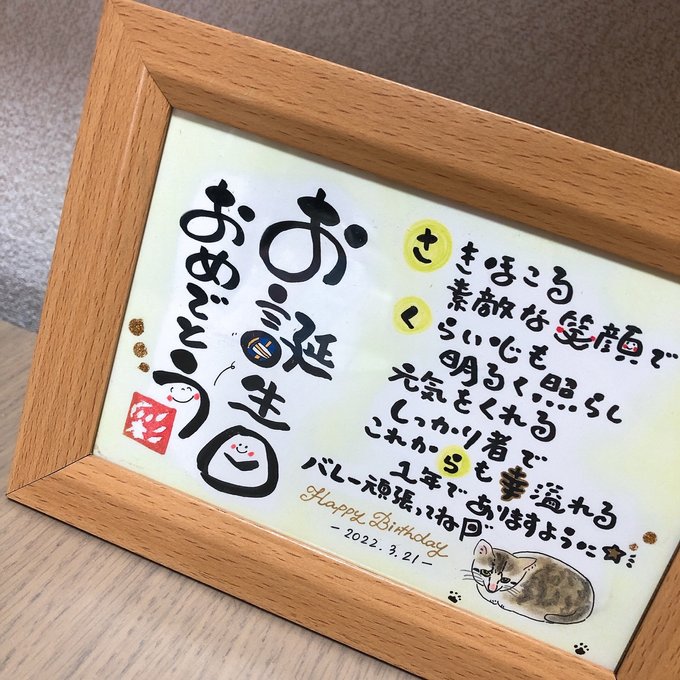 お誕生日
おめでとう
彩
さきほこる
素敵な笑顔で
くらい心も
明るく照らし
元気をくれる
しっかり者で
これからも幸溢れる
1年でありますように
バレー頑張ってね
Happy Birthday
-2022.3.21-